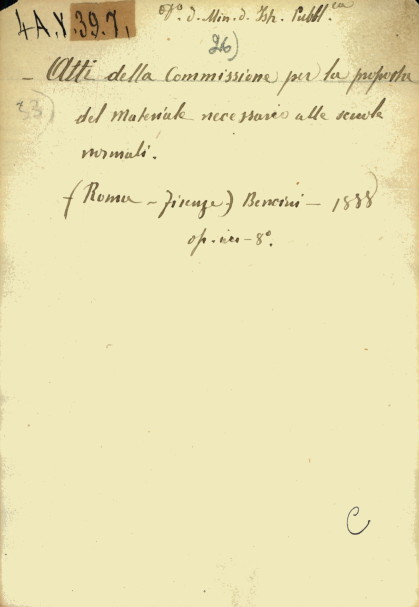 4A.Y.39.7,
op.° d. Min. d. Istr. Pubbl.ca
26)
- Atti della Commissione per la proposta
33)
del materiale necessario alle scuole
normali.
(Roma - Firenze) Bencini - 1888
op. in - 8°.
C